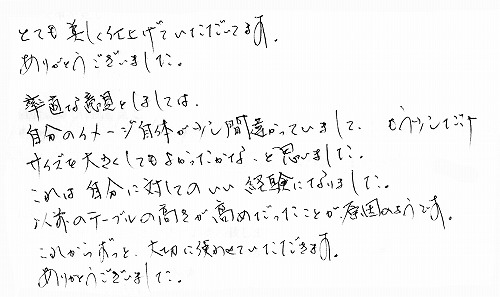 とても美しく仕上げていただいてます。
ありがとうございました。
率直な意見としましては、
自分のイメージ自体が少し間違がっていまして、もう少しだけ
サイズを大きくしてもよかったかな、と思いました。
これは自分に対してのいい経験になりました。
以前のテーブルの高さが高めだったことが原因のようです。
これからずっと、大切に使わせていただきます。
ありがとうございました。